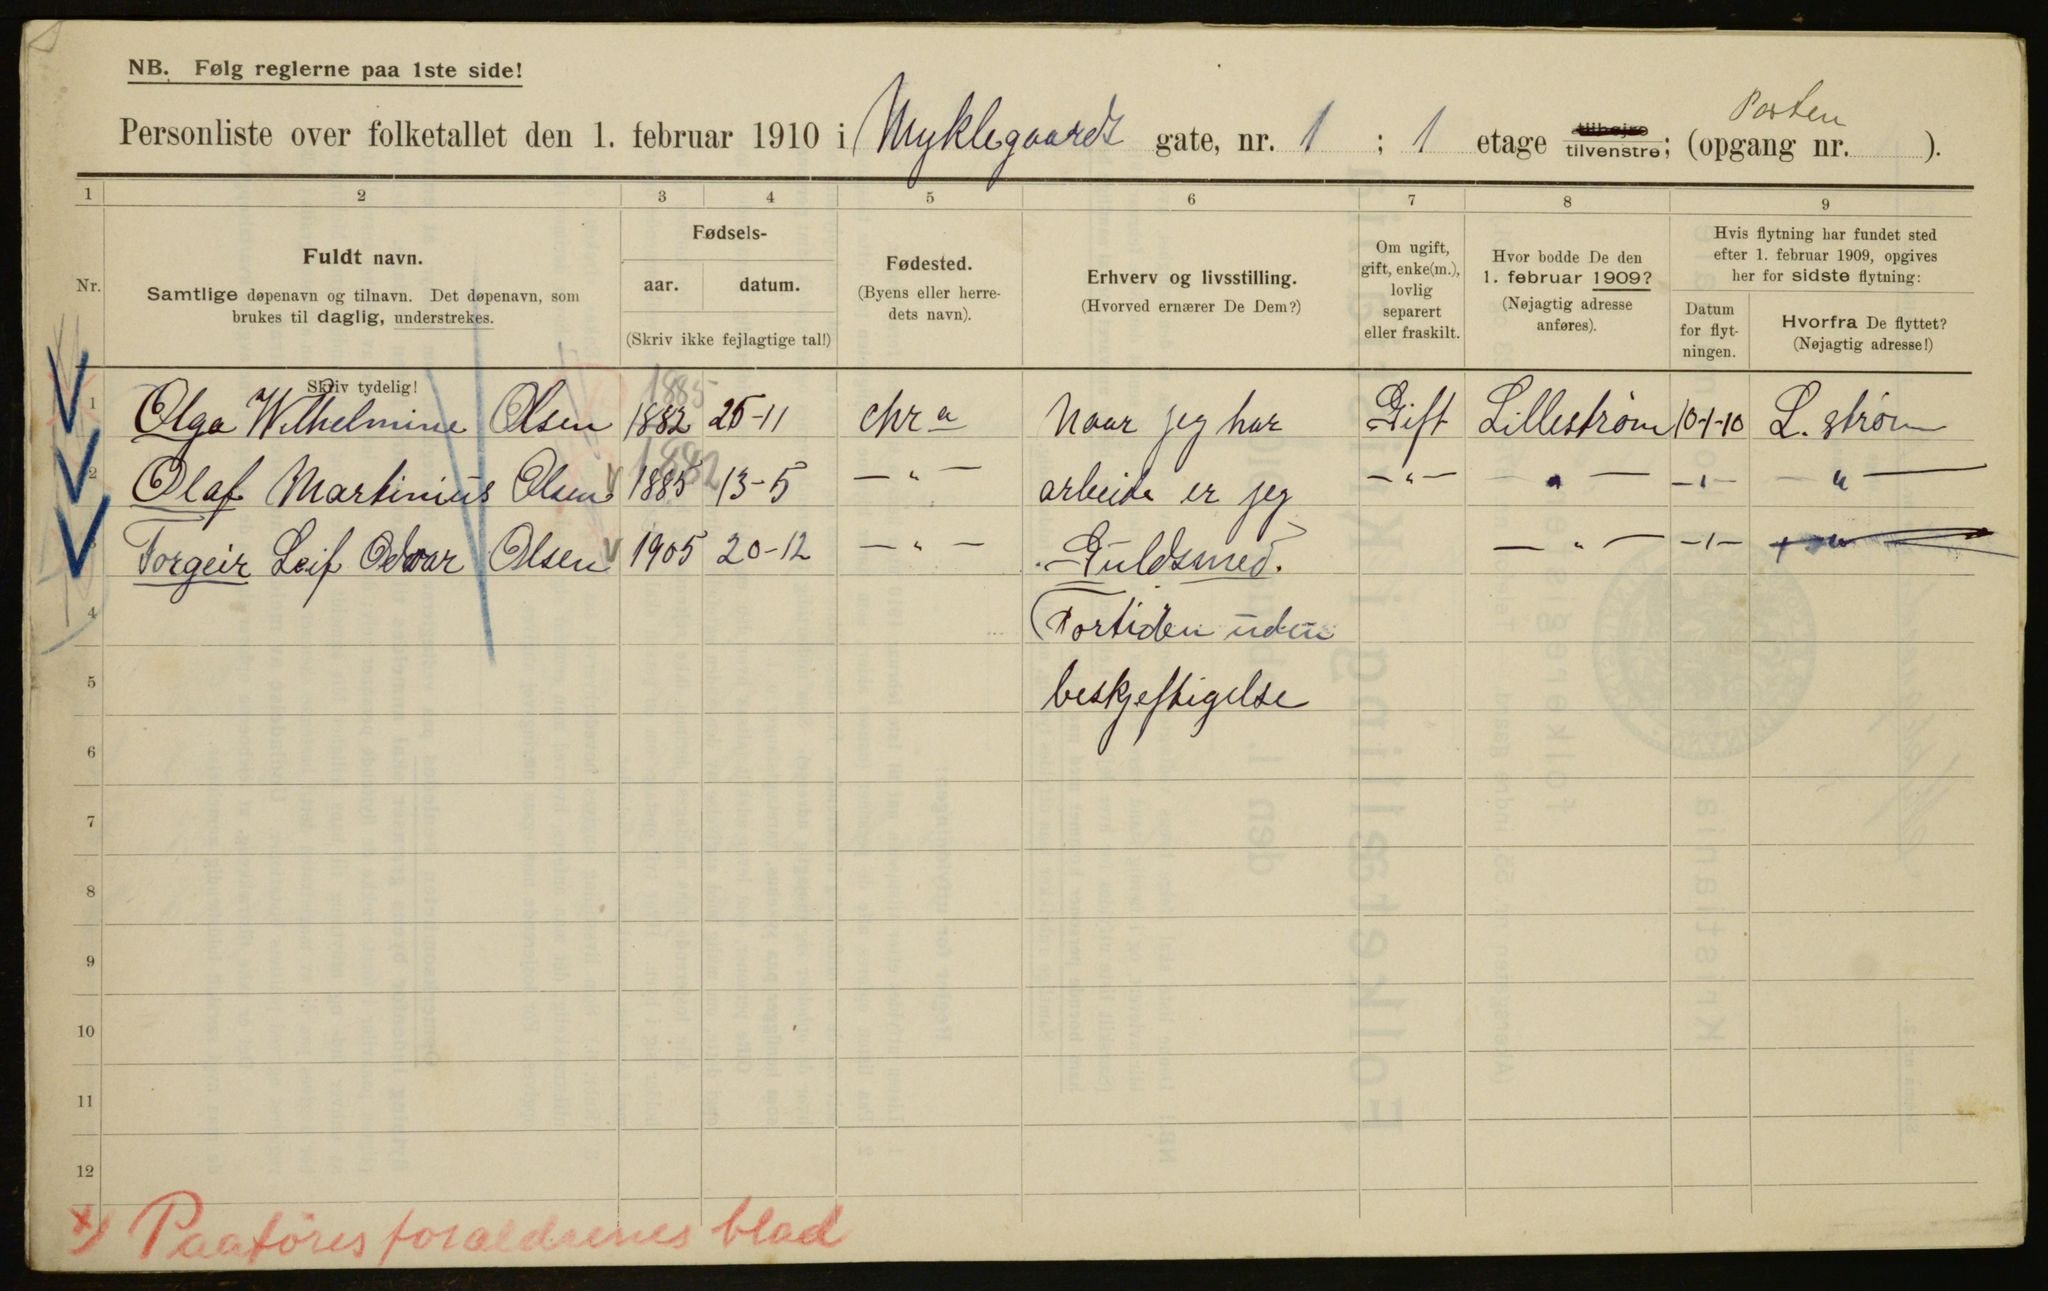 NB. Følg reglerne paa 1ste side!
Porten
Personliste over folketallet den 1. februar 1910 i Myklegaards gate, nr. 1 ; 1 etage tilhøjre tilvenstre; (opgang nr. ).
1 2 3 4 5 6 7 8 9
Nr.
Fuldt navn.
Samtlige døpenavn og tilnavn. Det døpenavn, som
brukes til daglig, understrekes.
Skriv tydelig!
Fødsels-
aar. datum.
(Skriv ikke fejlagtige tal!)
Fødested.
(Byens eller herre-
dets navn).
Erhverv og livsstilling.
(Hvorved ernærer De Dem?)
Om ugift,
gift, enke(m.),
lovlig
separert
eller fraskilt.
Hvor bodde De den
1. februar 1909?
(Nøjagtig adresse
anføres).
Hvis flytning har fundet sted
efter 1. februar 1909, opgives
her for sidste flytning:
Datum
for flyt-
ningen.
Hvorfra De flyttet?
(Nøjagtig adresse!)
1885
1 Olga Wilhelmine Olsen 1882 25-11 Chra Naar jeg har Gift Lillestrøm 10-1-10 L. strøm
1882
2 Olaf Martinius Olsen 1885 13-5 — " — arbeide er jeg — " — — " — -1- — " —
3 Torgeir Leif Odvar Olsen 1905 20-12 — " — Guldsmed. — " — -1-
4 Fortiden uden
5 beskjeftigelse
6
7
8
9
10
11
12
x) Paaføres foraldrenes blad